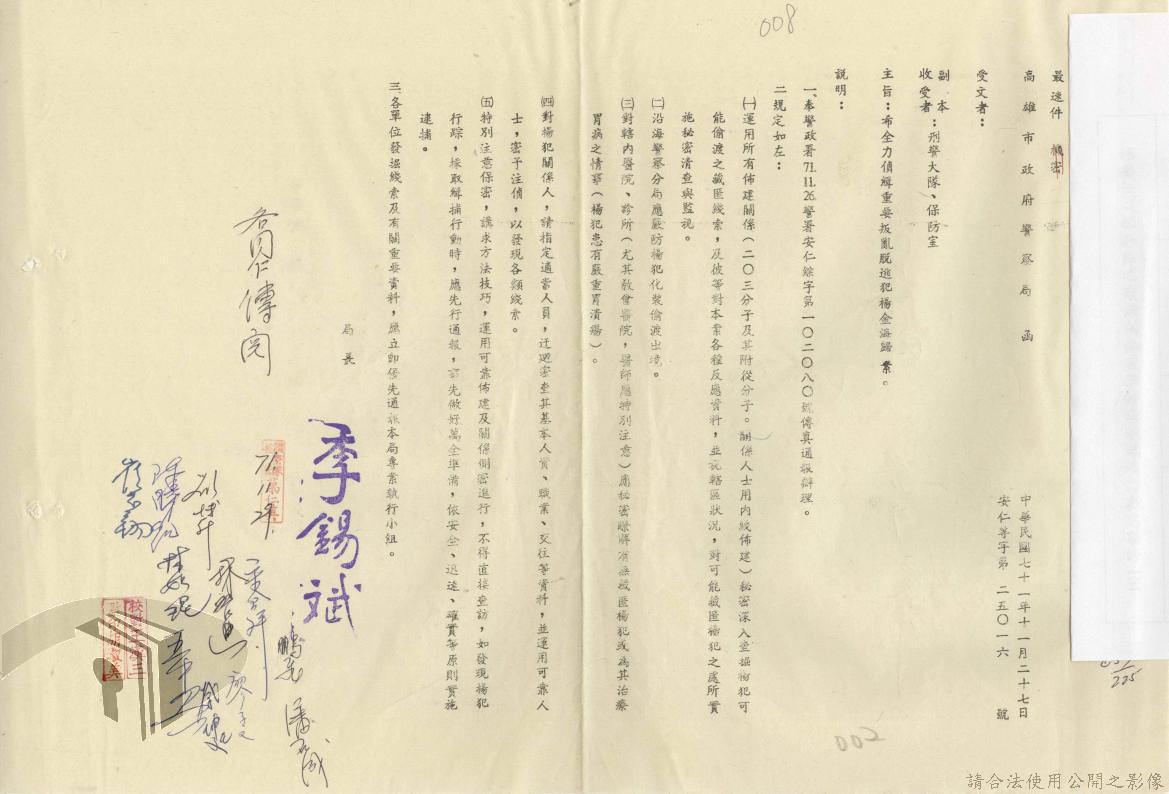 008
最速件 機密
高雄市政府警察局 函
中華民國七十一年十一月二十七日
安仁等字第 二五〇一六 號
受文者：
副本
收受者：刑警大隊、保防室
主旨：希全力偵緝重要叛亂脫逃犯楊金海歸案。
說明：
一、奉警政署71.11.26.警署安仁綜字第一〇二〇八〇號傳真通報辦理。
二、規定如左：
㈠運用所有佈建關係（二〇三分子及其附從分子。關係人士用內線佈建）秘密深入查掘楊犯可
能偷渡之藏匿綫索，及彼等對本案各種反應資料，並視轄區狀況，對可能藏匿楊犯之處所實
施秘密清查與監視。
㈡沿海警察分局應嚴防楊犯化裝偷渡出境。
㈢對轄內醫院、診所（尤其教會醫院，醫師應特別注意）應秘密瞭解有無藏匿楊犯或為其治療
胃病之情事（楊犯患有嚴重胃潰瘍）。
㈣對楊犯關係人，請指定適當人員，迂迴密查其基本人資、職業、交往等資料，並運用可靠人
士，密予注偵，以發現各類綫索。
㈤特別注意保密，講求方法技巧，運用可靠佈建及關係側密進行，不得直接查訪，如發現楊犯
行踪，採取緝捕行動時，應先行通報，事先做好萬全準備，依安全、迅速、確實等原則實施
逮捕。
三、各單位發掘綫索及有關重要資料，應立即優先通報本局專業執行小組。
局長
季錫斌
各同仁傳閱
71.11.29.
002
225
請合法使用公開之影像